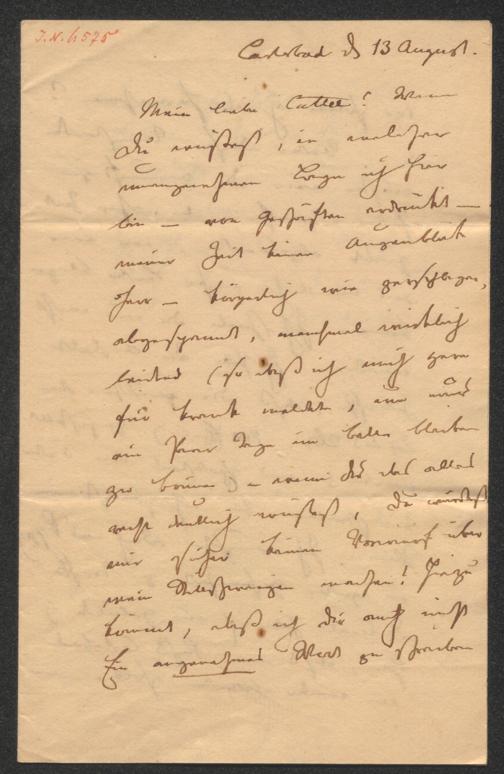 I.N. 6575
Carlsbad d 13 August.
Mein lieber Cattel! Wenn
Du wüßtest, in welcher
unangenehmen Lage ich hier
bin – von Geschäften erdrückt –
meiner Zeit keinen Augenblick
Herr – körperlich wie zerschlagen,
abgespannt, manchmal wirklich
leidend (so daß ich mich gern
für krank meldete, um nur
ein Paar Tage im Bette bleiben
zu können) – wenn Du das alles
recht deutlich wüßtest, Du würdest
mir sicher keinen Vorwurf über
mein Stillschweigen machen! Hiezu
kommt, daß ich Dir auch nicht
Ein angenehmes Wort zu schreiben